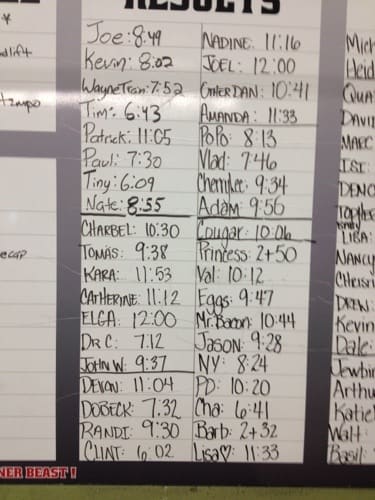 RESULTS
Joe: 8:49
Kevin: 8:02
Wayne Train: 7:52
Tim: 6:43
Patrick: 11:05
Paul: 7:30
Tiny: 6:09
Nate: 8:55
CHARBEL: 10:30
TOMAS: 9:38
KARA: 11:53
CATHERINE: 11:12
ELGA: 12:00
DR C: 7:12
JOHN W: 9:37
DEVON: 11:04
DOBECK: 7:32
RANDI: 9:30
CLINT: 6:02
NADINE: 11:16
JOEL: 12:00
OTHER DAN: 10:41
AMANDA: 11:33
PoPo: 8:13
Vlad: 7:46
Cherrylee: 9:34
Adam: 9:56
Cougar: 10:06
Princess: 2+50
Val: 10:12
Eggs: 9:47
Mr. Bacon: 10:44
JASON: 9:28
NY: 8:24
PD: 10:20
Cha: 6:41
Barb: 2+32
Lisa♡: 11:33
Mich
Heid
QUA
DAVID
MARC
IST:
DENC
LIBA:
NANCY
CHRISTI
DREW:
Kevin
Dale:
Jewbin
Arthu
Katie
Walt:
Basil
dlift
tempo
ecap
NER BEAST!